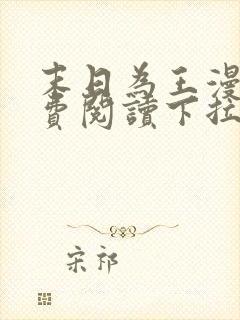 末日為王漫
費閱讀下拉
宋祁